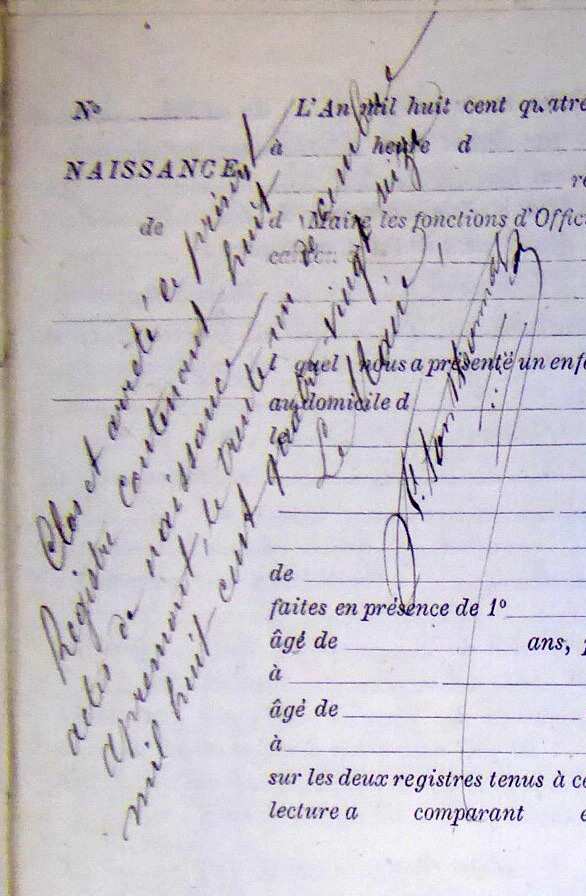 Nº
NAISSANCE
de
L'An mil huit cent quatre
à heure d
d Maire les fonctions d'Offic
canton d
quel nous a présenté un enfa
au domicile d
le
de
faites en présence de 1º
âgé de ans,
à
âgé de
à
sur les deux registres tenus à ce
lecture a comparant e
Clos et arrêté le présent
Registre contenant huit
actes de naissance
apremont, le trente un décembre
mil huit cent quatre vingt seize
Le Maire